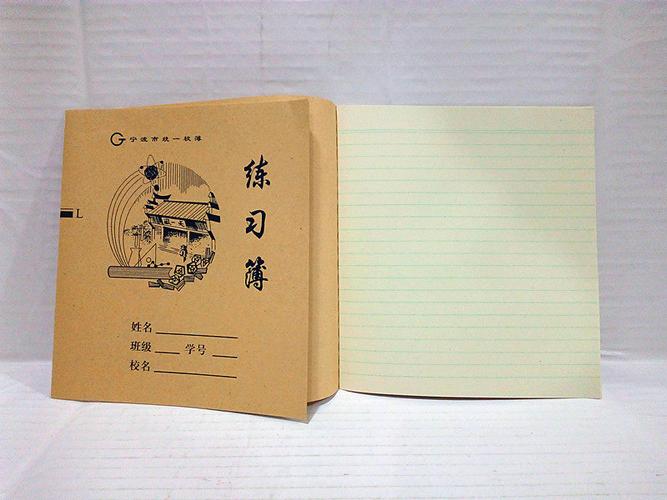 宁波市统一校簿
练习簿
L
姓名
班级 学号
校名